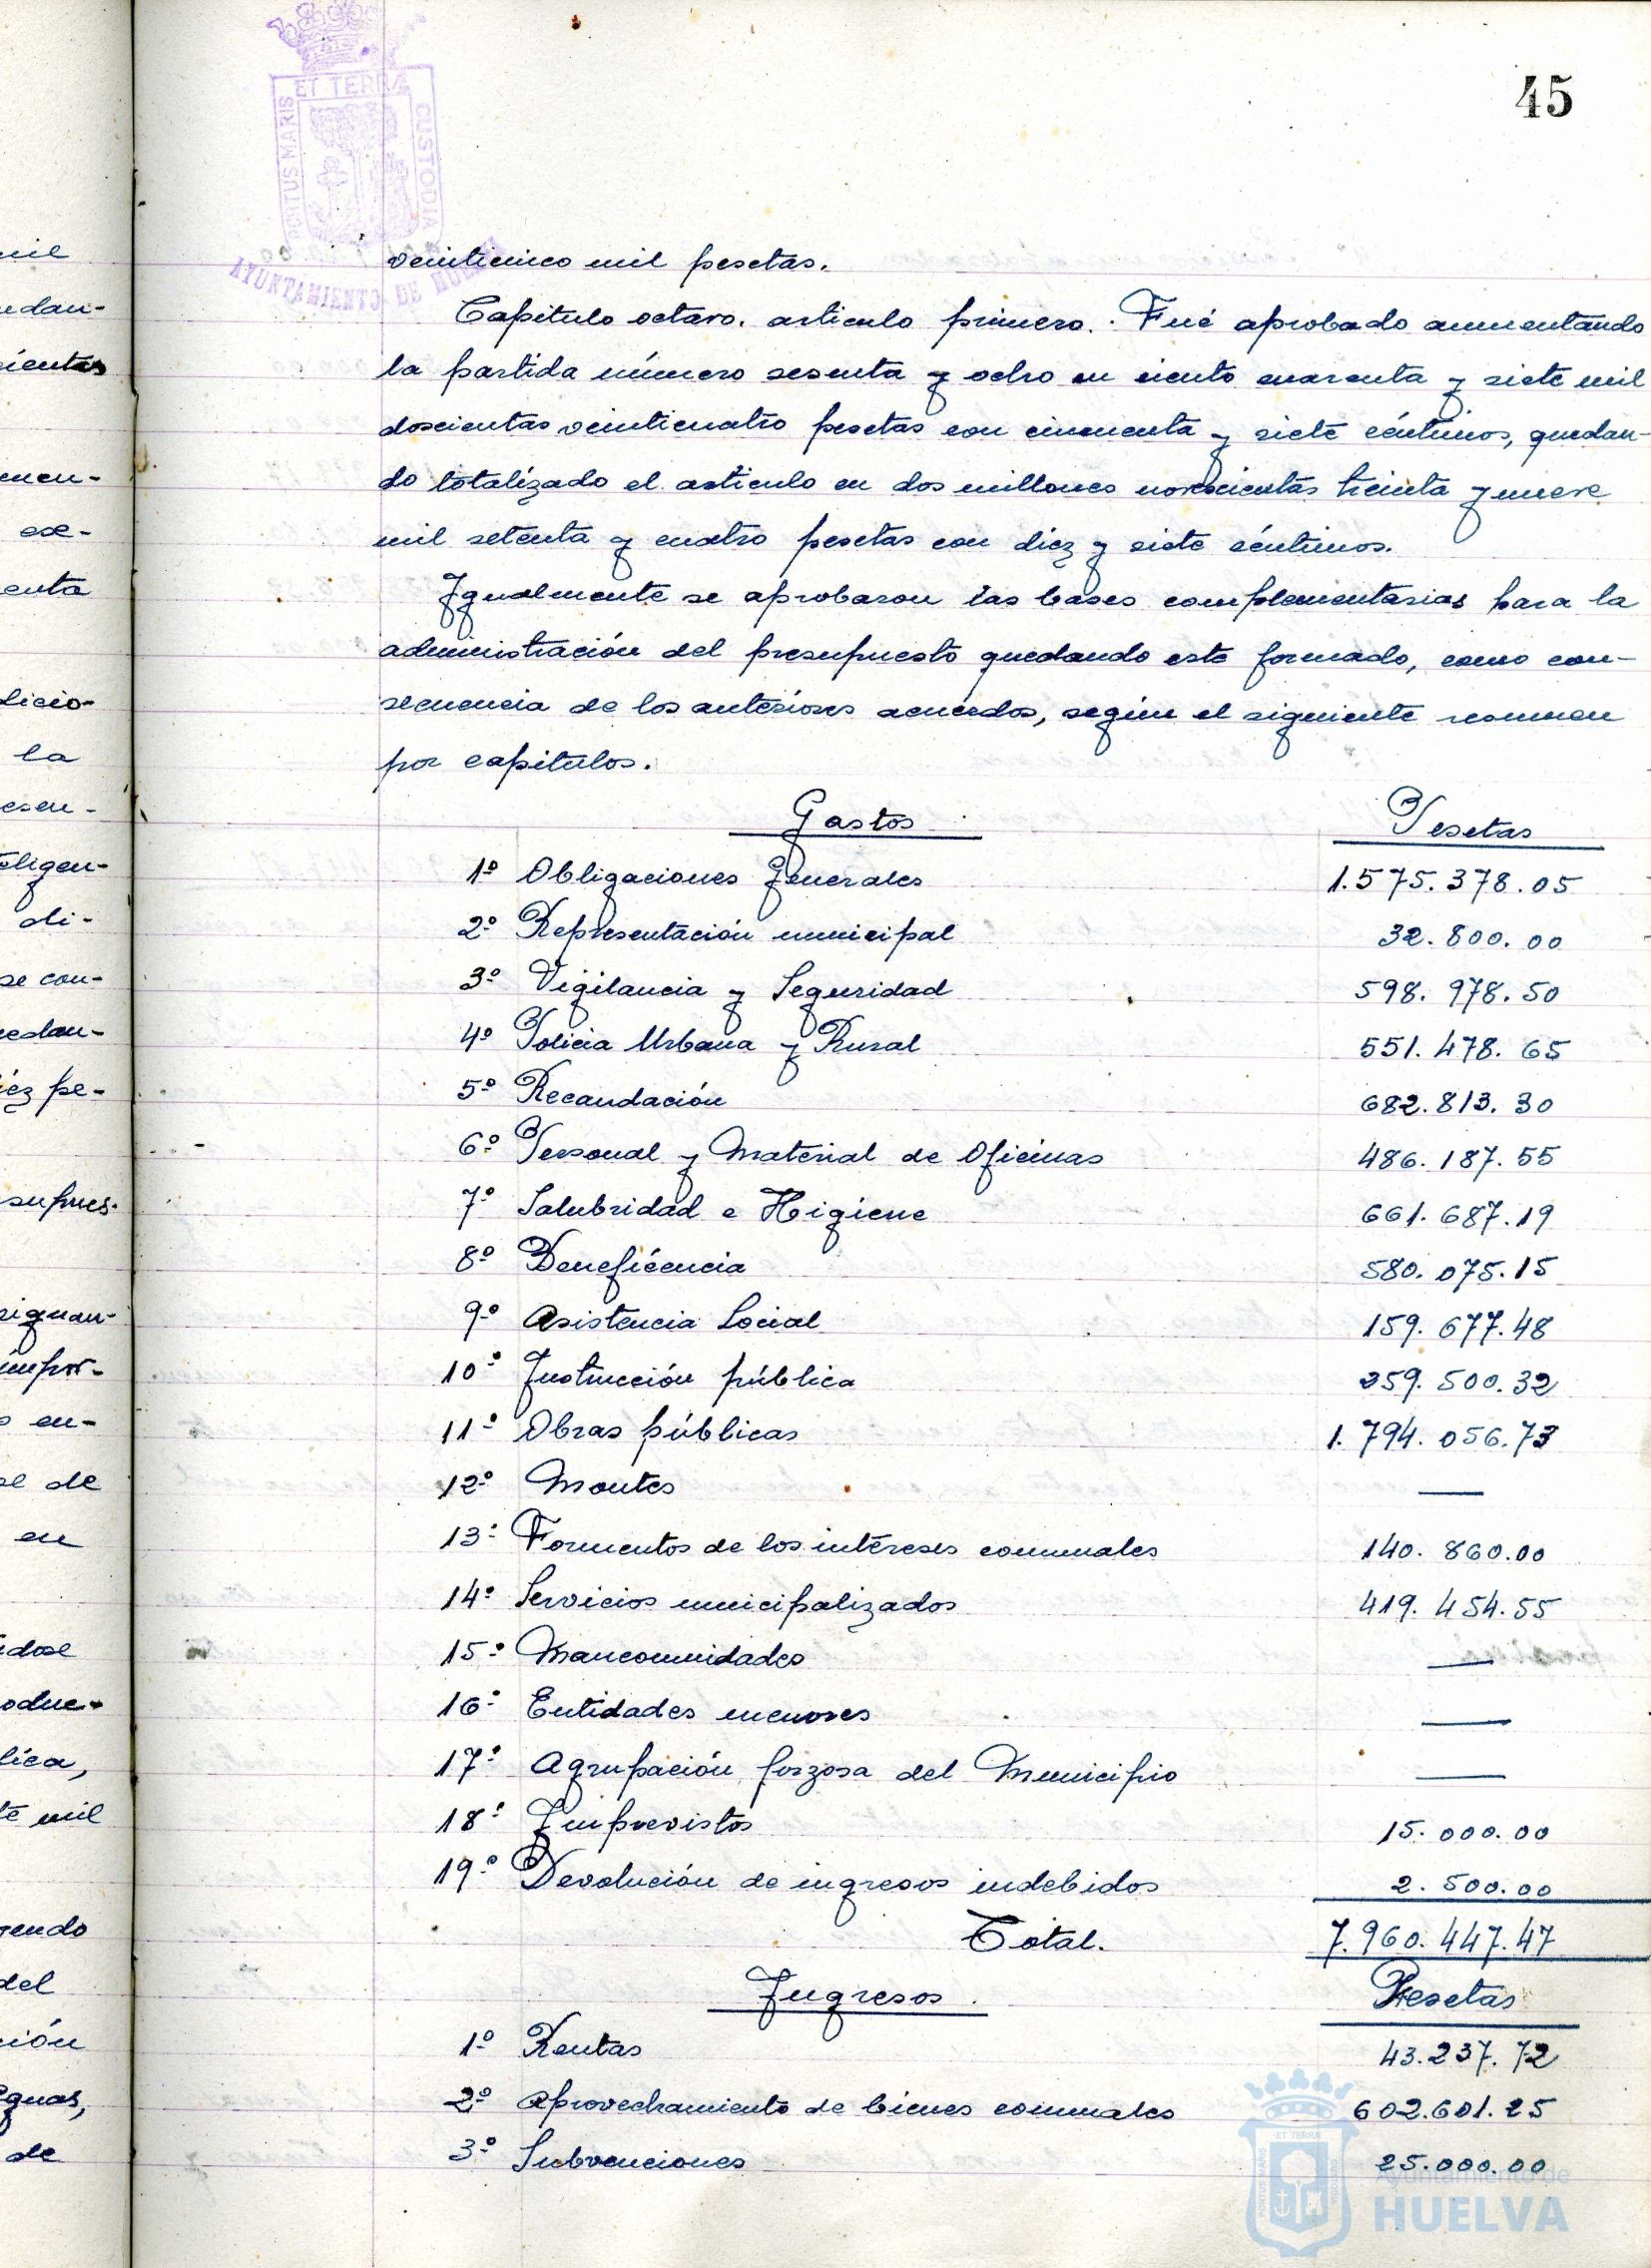 45
ET TERRÆ
PORTUS MARIS
CUSTODIA
AYUNTAMIENTO DE
veinticinco mil pesetas.
Capitulo octavo. articulo primero. Fué aprobado aumentando
la partida número sesenta y ocho en ciento cuarenta y siete mil
doscientas veinticuatro pesetas con cincuenta y siete céntimos, quedan-
do totalizado el articulo en dos millones novecientas treinta y nueve
mil setenta y cuatro pesetas con diez y siete céntimos.
Igualmente se aprobaron las bases complementarias para la
administración del presupuesto quedando este formado, como con-
secuencia de los anteriores acuerdos, según el siguiente resumen
por capitulos.
Gastos Pesetas
1º Obligaciones Generales 1.575.378.05
2º Representación municipal 32.800.00
3º Vigilancia y Seguridad 598.978.50
4º Policia Urbana y Rural 551.478.65
5º Recaudación 682.813.30
6º Personal y Material de Oficinas 486.187.55
7º Salubridad e Higiene 661.687.19
8º Beneficencia 580.075.15
9º Asistencia Social 159.677.48
10º Instrucción pública 259.500.32
11º Obras públicas 1.794.056.73
12º Montes —
13º Formentos de los intereses comunales 140.860.00
14º Servicios municipalizados 419.454.55
15º Mancomunidades —
16º Entidades menores —
17º Agrupación forzosa del Municipio —
18º Imprevistos 15.000.00
19º Devolución de ingresos indebidos 2.500.00
Total. 7.960.447.47
Ingresos Pesetas
1º Rentas 43.237.72
2º Aprovechamiento de bienes comunales 602.601.25
3º Subvenciones 25.000.00
Ayuntamiento de
HUELVA